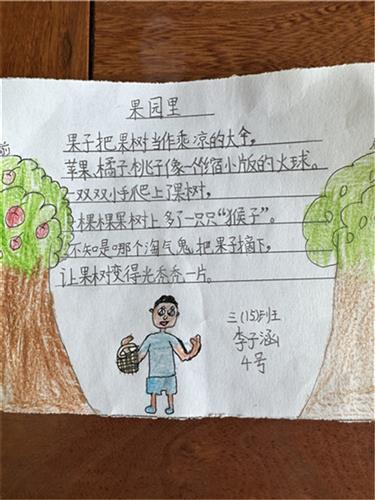 果园里
果子把果树当作乘凉的大伞,
苹果、橘子、桃子像一个缩小版的火球。
一双双小手爬上了果树,
一棵棵果树上多了一只只“猴子”。
不知是哪个淘气鬼,把果子摘下,
让果树变得光秃秃一片。
三(15)班
李子涵
4号